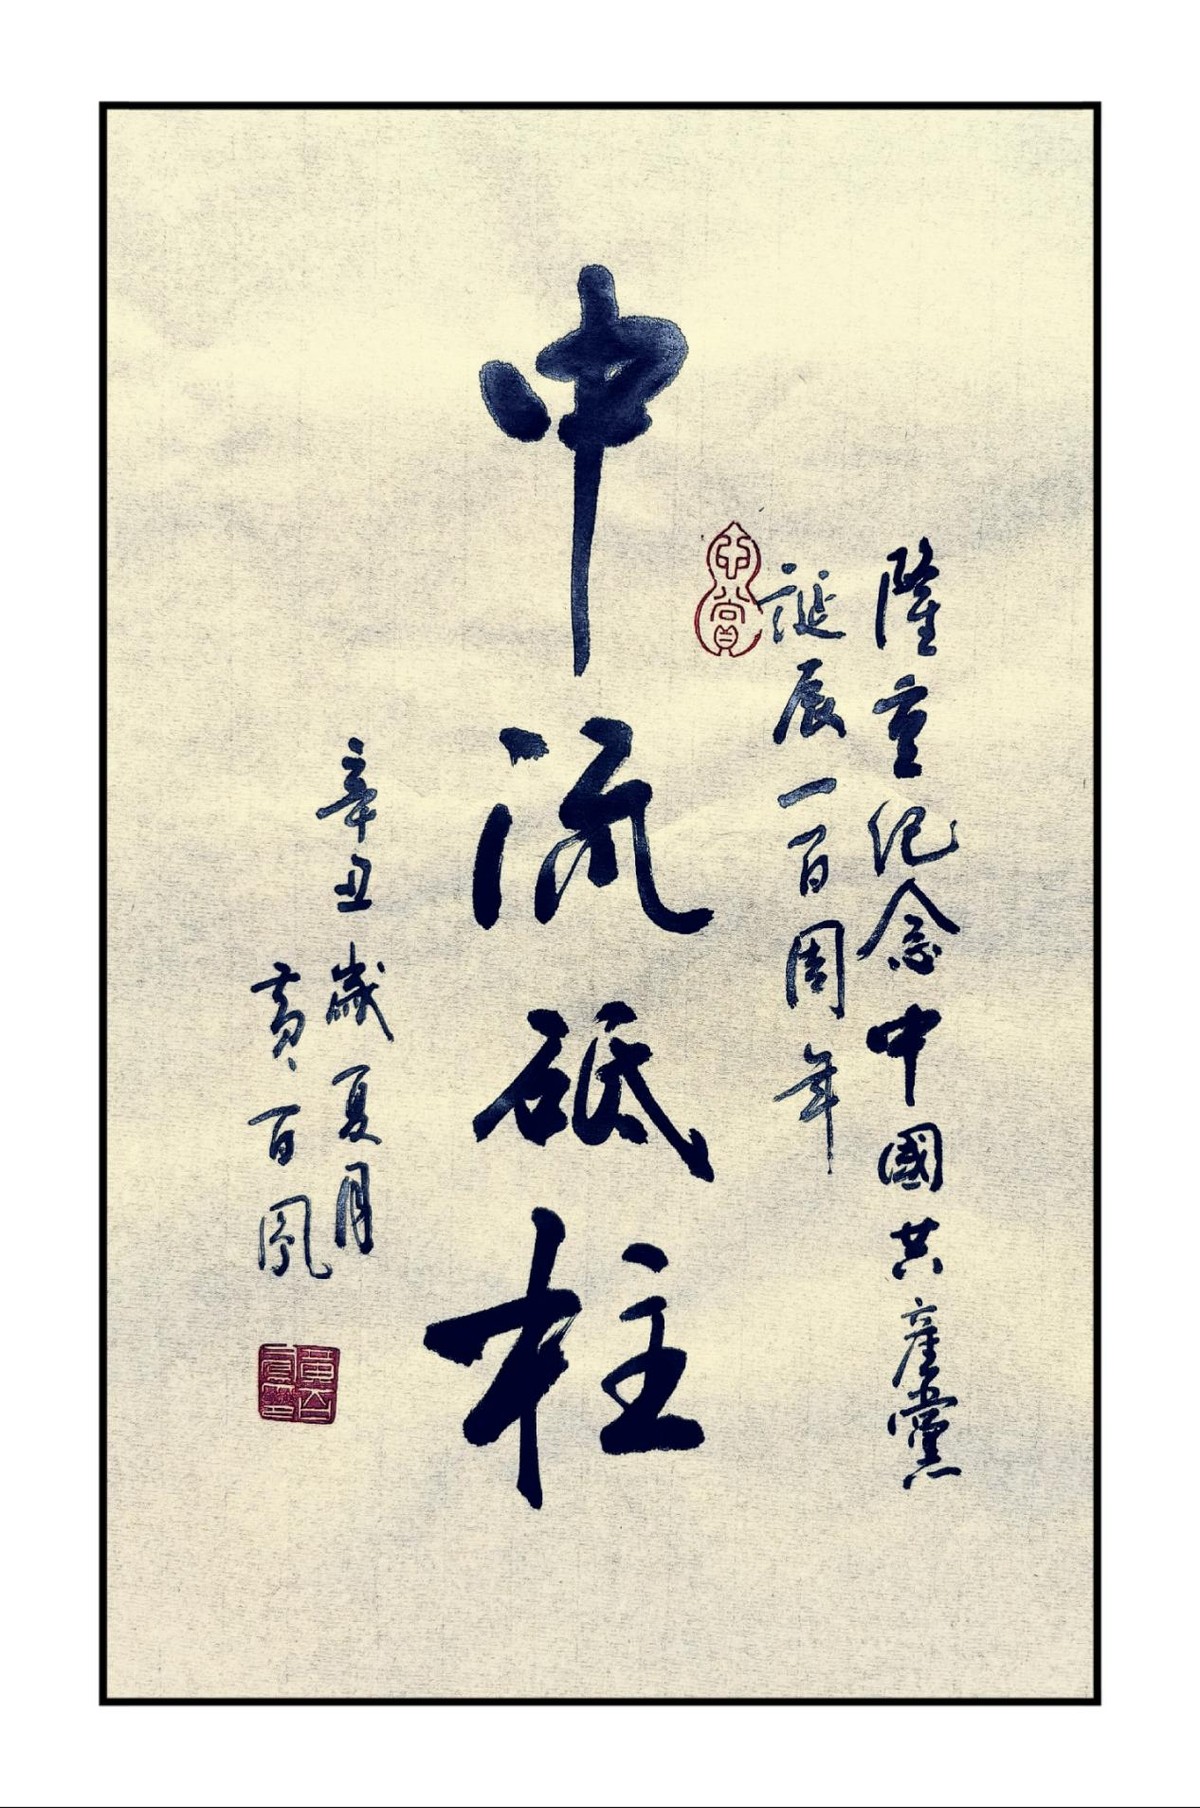 隆重纪念中國共產黨
誕辰一百周年
中流砥柱
辛丑歲夏月
黄百凤